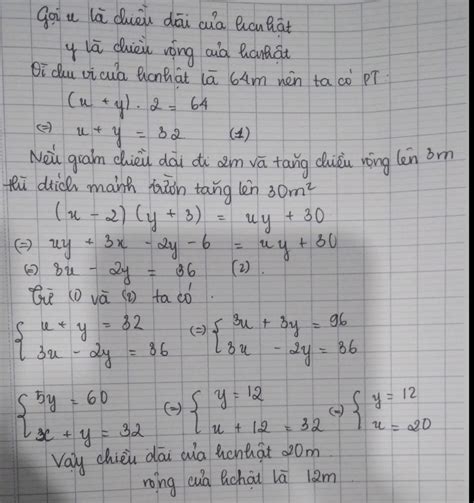 Gọi x là chiều dài của hcnhật
y là chiều rộng của hcnhật
Vì chu vi của hcnhật là 64m nên ta có PT:
(x + y) . 2 = 64
(=) x + y = 32 (1)
Nếu giảm chiều dài đi 2m và tăng chiều rộng lên 3m
thì dtích mảnh vườn tăng lên 30m²
(x - 2) (y + 3) = xy + 30
(=) xy + 3x - 2y - 6 = xy + 30
(=) 3x - 2y = 36 (2).
Từ (1) và (2) ta có:
{ x + y = 32 (=) { 3x + 3y = 96
{ 3x - 2y = 36 { 3x - 2y = 36
{ 5y = 60 (=) { y = 12 (=) { y = 12
{ x + y = 32 { x + 12 = 32 { x = 20
Vậy chiều dài của hcnhật 20m
rộng của hchật là 12m